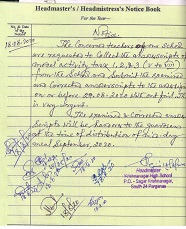 Headmaster's / Headmistress's Notice Book
For the Year—
No. & Date
18.08.2020
Notice
The Concerned teachers of our School
are requested to collect the answerscripts of
model activity task 1, 2, 3 (V to VIII)
from the School and submit the examined
and corrected answerscripts to the
on or before 29.08.2020 without fail. It
is very urgent.
The examined & corrected answer
scripts will be handed to the guardians
at the time of distribution of mid-day
meal September, 2020.
Headmaster
Krishnanagar High School
P.O. - Sagar Krishnanagar,
South 24 Parganas